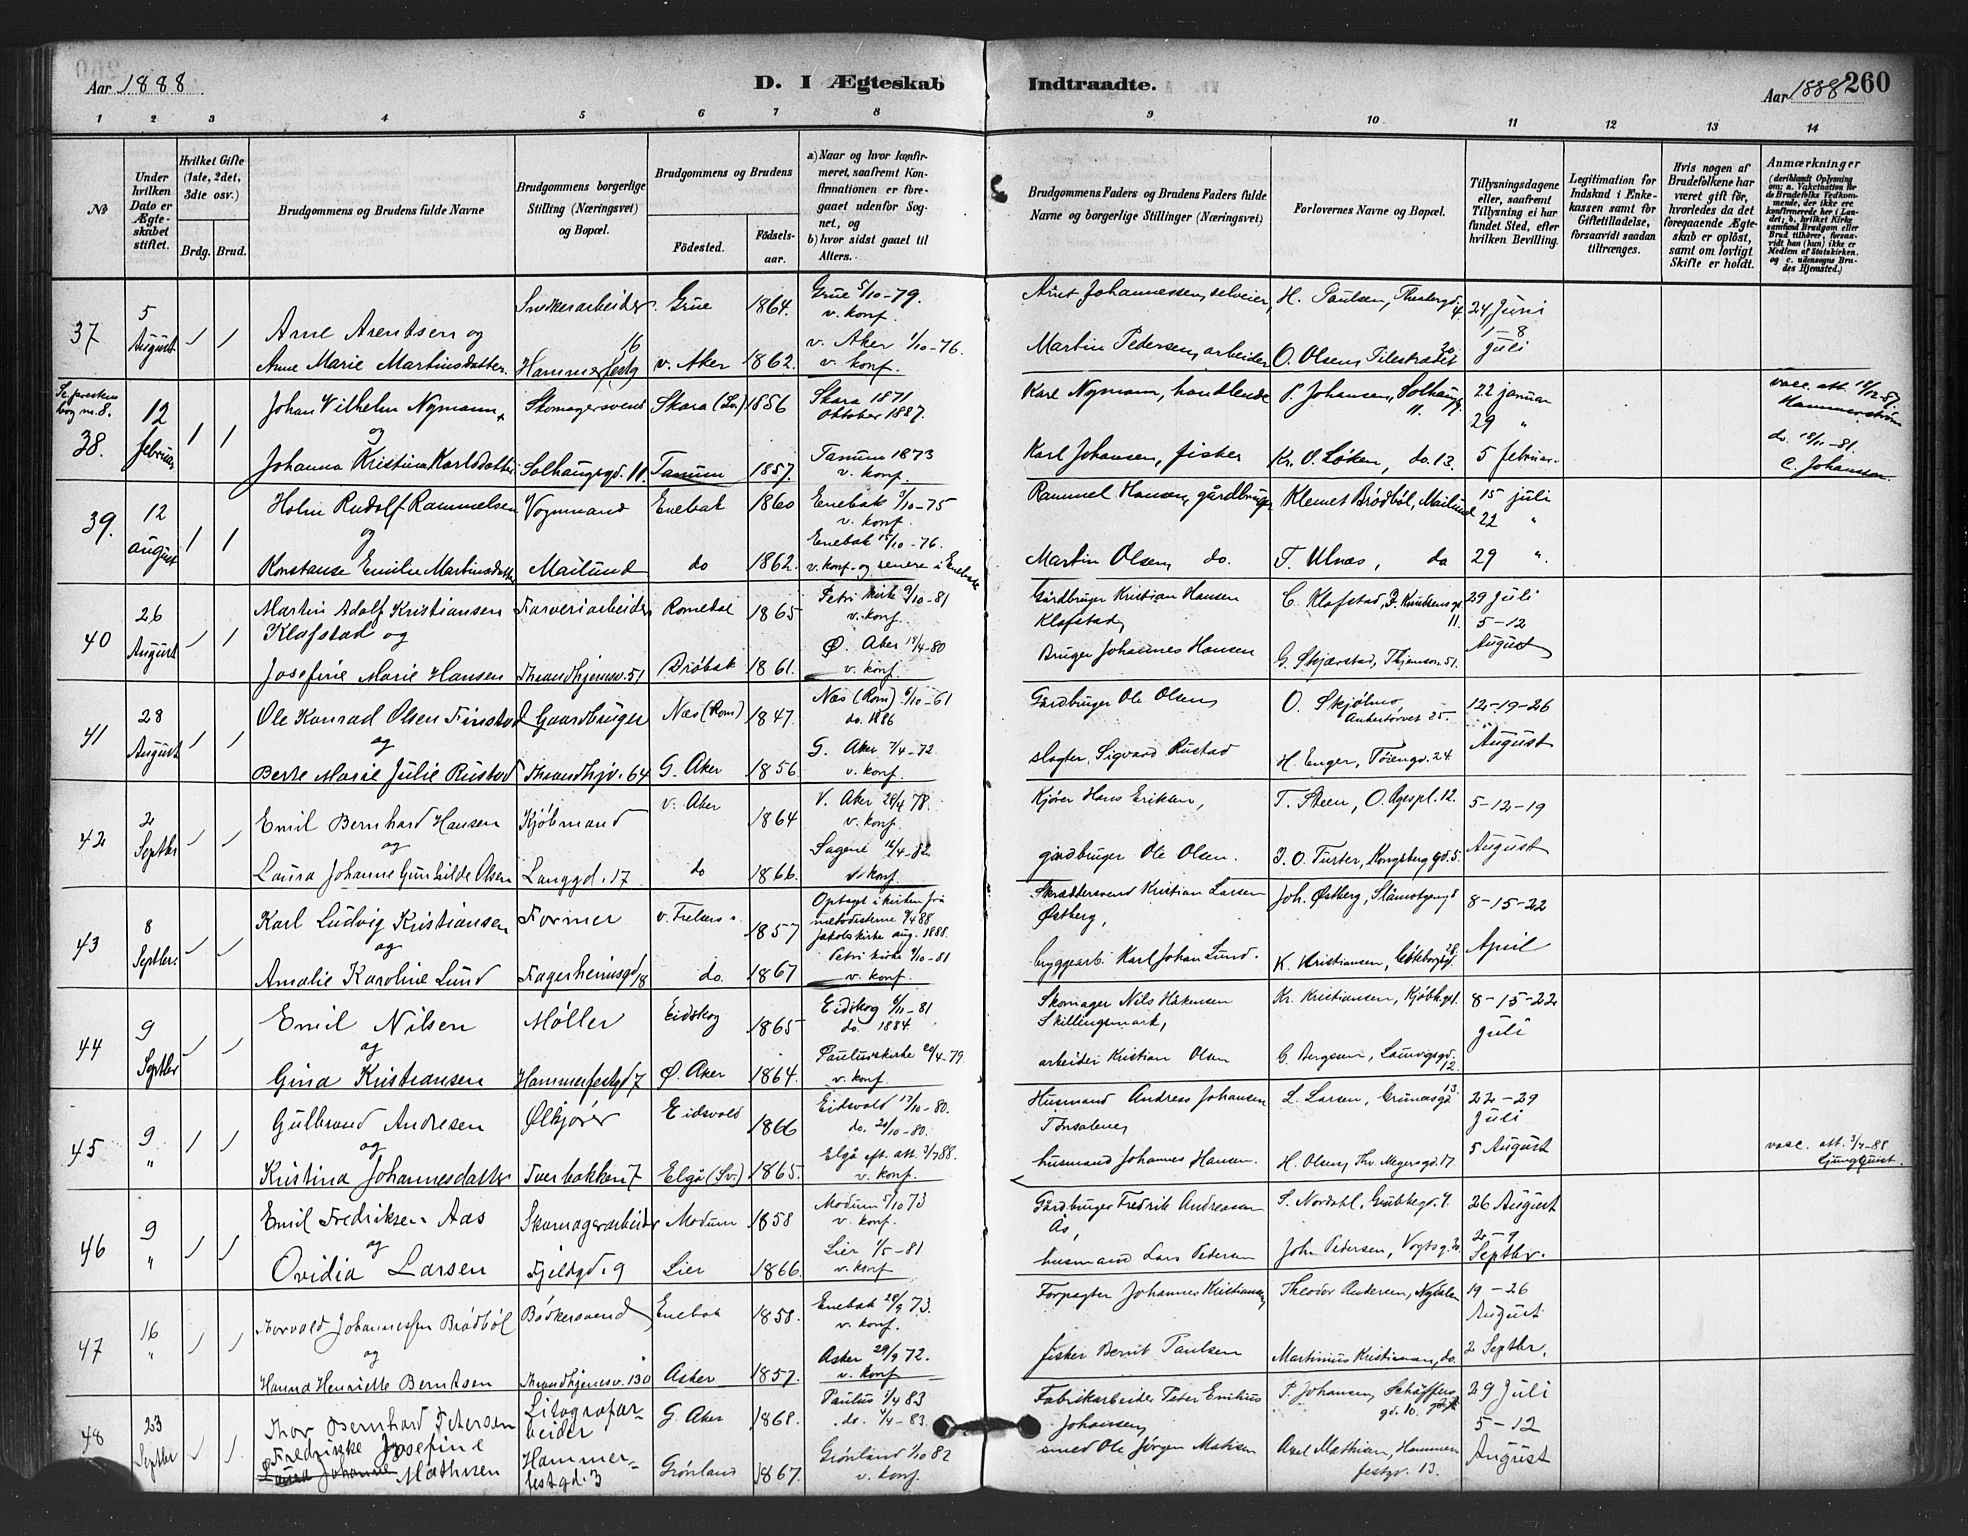 Aar 1888
D. I Ægteskab
Indtraadte.
Aar 1888 260
1 2 3 4 5 6 7 8 9 10 11 12 13 14
No
Under hvilken Dato er Ægteskabet stiftet.
Hvilket Gifte (1ste, 2det, 3dte osv.)
Brdg. Brud.
Brudgommens og Brudens fulde Navne
Brudgommens borgerlige Stilling (Næringsvei) og Bopæl.
Brudgommens og Brudens
Fødested.
Fødselsaar.
a) Naar og hvor konfirmeret, saafremt Konfirmationen er foregaaet udenfor Sognet, og
b) hvor sidst gaaet til Alters.
Brudgommens Faders og Brudens Faders fulde Navne og borgerlige Stillinger (Næringsvei)
Forlovernes Navne og Bopæl.
Tillysningsdagene eller, saafremt Tillysning ei har fundet Sted, efter hvilken Bevilling.
Legitimation for Indskud i Enkekassen samt for Giftetilladelse, forsaavidt saadan tiltrænges.
Hvis nogen af Brudefolkene har været gift før, hvorledes da det foregaaende Ægteskab er opløst, samt om lovligt Skifte er holdt.
Anmærkninger (deriblandt Oplysning om: a. Vakcination for de Brudefolks Vedkommende, der ikke ere konfirmerede her i Landet; b. hvilket Kirkesamfund Brudgom eller Brud tilhører, forsaavidt han (hun) ikke er Medlem af Statskirken. og c. udensogns Brudes Hjemsted.)
37 5 August 1 1 Arne Arentsen og Snedkerarbeider Grue 1864. Grue 5/10-79. v. konf. Arnt Johannessen, selveier, H. Paulsen, 4 24 Juni
Anne Marie Martinsdatter. Hammerfestg 16 v. Aker 1862. v. Aker 1/10-76. v. konf. Martin Pedersen, arbeider O. Olsen, Pilestrædet 20 1-8 Juli
38. 12 februar 1 1 Johan Wilhelm Nymann og Skomagersvend Skara (Sv.) 1856 Skara 1871 Oktober 1887. Karl Nymann, handlende P. Johansen, Solhaugg 11. 22 januar 29 " vacc. att. 12/12-87. Hammerström
Johanna Kristina Karlsdatter Solhaugsgd. 11. Tanum 1857. Tanum 1873 v. konf. Karl Johansen, fisker Kr. O. Løken, do. 13. 5 februar. do. 18/11-81. C. Johansson
39. 12 august 1 1 Holm Rudolf Rammelsen og Vognmand Enebak 1860 Enebak 3/10-75 v. konf. Rammel Hansen, gårdbruger Klemet Brødbøl, Mailund 15 juli 22 "
Konstanse Emilie Martinsdatter Mailund do 1862. Enebak 15/10-76. v. konf. og senere i Enebak Martin Olsen, do. T. Ulnæs, do 29 "
40 26 August 1 1 Martin Adolf Kristiansen Klafstad og Farveriarbeider Romedal 1865 Petri kirke 9/10-81 v. konf. Gårdbruger Kristian Hansen Klafstad, C. Klafstad, P. Knudsens gd 11. 29 Juli 5-12
Josefine Marie Hansen Throndhjemsv. 51 Drøbak 1861. Ø. Aker 18/4-80 v. konf. Bruger Johannes Hansen G. Skjærstad, Thjemsv. 51. August
41 28 August 1 1 Ole Konrad Olsen Finstad og Gaardbruger Næs (Rom) 1847. Næs (Rom) 6/10-61 do. 1886 Gårdbruger Ole Olsen, O. Skjølmo, Ankertorvet 25. 12-19-26
Berte Marie Julie Rustad Throndhjv. 64 G. Aker 1856. G. Aker 7/4-72 v. konf. slagter Sigvard Rustad H. Enger, Tøiengd. 24. August
42 2 Septbr 1 1 Emil Bernhard Hansen og Kjøbmand v. Aker 1864 V. Aker 28/4 78. v. konf. Kjører Hans Eriksen, T. Steen, O. Ryes pl. 12. 5-12-19
Laura Johanne Gunhilde Olsen Langgd. 17 do 1866. Sagene 16/4-82 v. konf. gårdbruger Ole Olsen. J. O. Furter, Kongsberg gd. 5. August
43 8 Septbr. 1 1 Karl Ludvig Kristiansen og Former v. Frelsers s. 1857 Optaget i kirken fra metodisterne 9/4 88 Jakobs kirke aug. 1888. Skræddersvend Kristian Larsen Østberg, Joh. Østberg, 8-15-22
Amalie Karoline Lund Fagerheimsgd 18 do. 1867 Petri kirke 9/10-81 v. konf. byggearb. Karl Johan Lund. K. Kristiansen, Gøteborggd. 28. April
44 9 Septbr 1 1 Emil Nilsen og Møller Eidskog 1865 Eidskog 6/11-81 do. 1884. Skomager Nils Håkensen Skillingsmark, Kr. Kristiansen, Kjøbh.gt. 8-15-22
Gina Kristiansen Hammerfestgd 7 Ø. Aker 1864. Paulus kirke 20/4-79 v. konf. arbeider Kristian Olsen G. Bergesen, Laurvigsgd. 12. Juli
45 9 " 1 1 Gulbrand Andresen og Ølkjører Eidsvold 1866 Eidsvold 17/10-80. do. 24/10-80. Husmand Andreas Johansen L. Larsen, Grünersgd. 13 22-29 Juli
Kristina Johannesdatter Tverbakken 7 Elgå (Sv.) 1865. Elgå eft. att. 3/7 88. v. konf. husmand Johannes Hansen. H. Olsen, Thv. Meyersgd. 17. 5 August vacc. att. 3/7-88 Ljungquist.
46 9 " 1 1 Emil Fredriksen Aas og Skomagerarbeider Modum 1858 Modum 5/10 73 v. konf. Gårdbruger Fredrik Andreassen Ås, S. Nordahl, Grubbegd. 4. 26 August
Ovidia Larsen Fjeldgd. 9 Lier 1866. Lier 1/5-81 v. konf husmand Lars Pedersen Joh. Pedersen, Vogtsg. 20. 2-9 Septbr.
47 16 " 1 1 Thorvald Johannessen Brødbøl og Bødkersvend Enebak 1858. Enebak 28/9 73. v. konf. Forpagter Johannes Kristiansen, Theodor Andersen, Nydalen 19-26 August
Hanna Henriette Berntsen Throndhjemsv. 130 Asker 1857. Asker 29/9 72. v. konf. fisker Bernt Paulsen Martinius Kristiansen, do. 2 Septbr.
48 23 Septbr 1 1 Thor Bernhard Petersen og Litografarbeider G. Aker 1868. Paulus 1/4 83 do. 4/4-83. Fabrikarbeider Peter Emilius Johansen, P. Johansen, Schäffers gd. 10. 29 Juli 5-12
Fredrikke Josefine Laura Johanne Mathisen Hammerfestgd. 3 Grønland 1867. Grønland 1/10 82 v. konf. smed Ole Jørgen Matisen Axel Mathisen, Hammerfestgd. 13. August